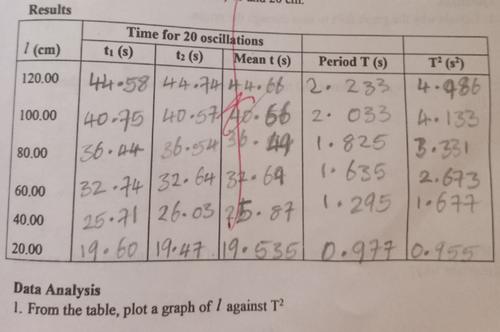 and 20 cm.
Results
l (cm) Time for 20 oscillations
t₁ (s) t₂ (s) Mean t (s) Period T (s) T² (s²)
120.00 44.58 44.74 44.66 2.233 4.986
100.00 40.75 40.57 40.66 2.033 4.133
80.00 36.44 36.54 36.49 1.825 3.331
60.00 32.74 32.64 32.69 1.635 2.673
40.00 25.71 26.03 25.87 1.295 1.677
20.00 19.60 19.47 19.535 0.977 0.955
Data Analysis
1. From the table, plot a graph of l against T²